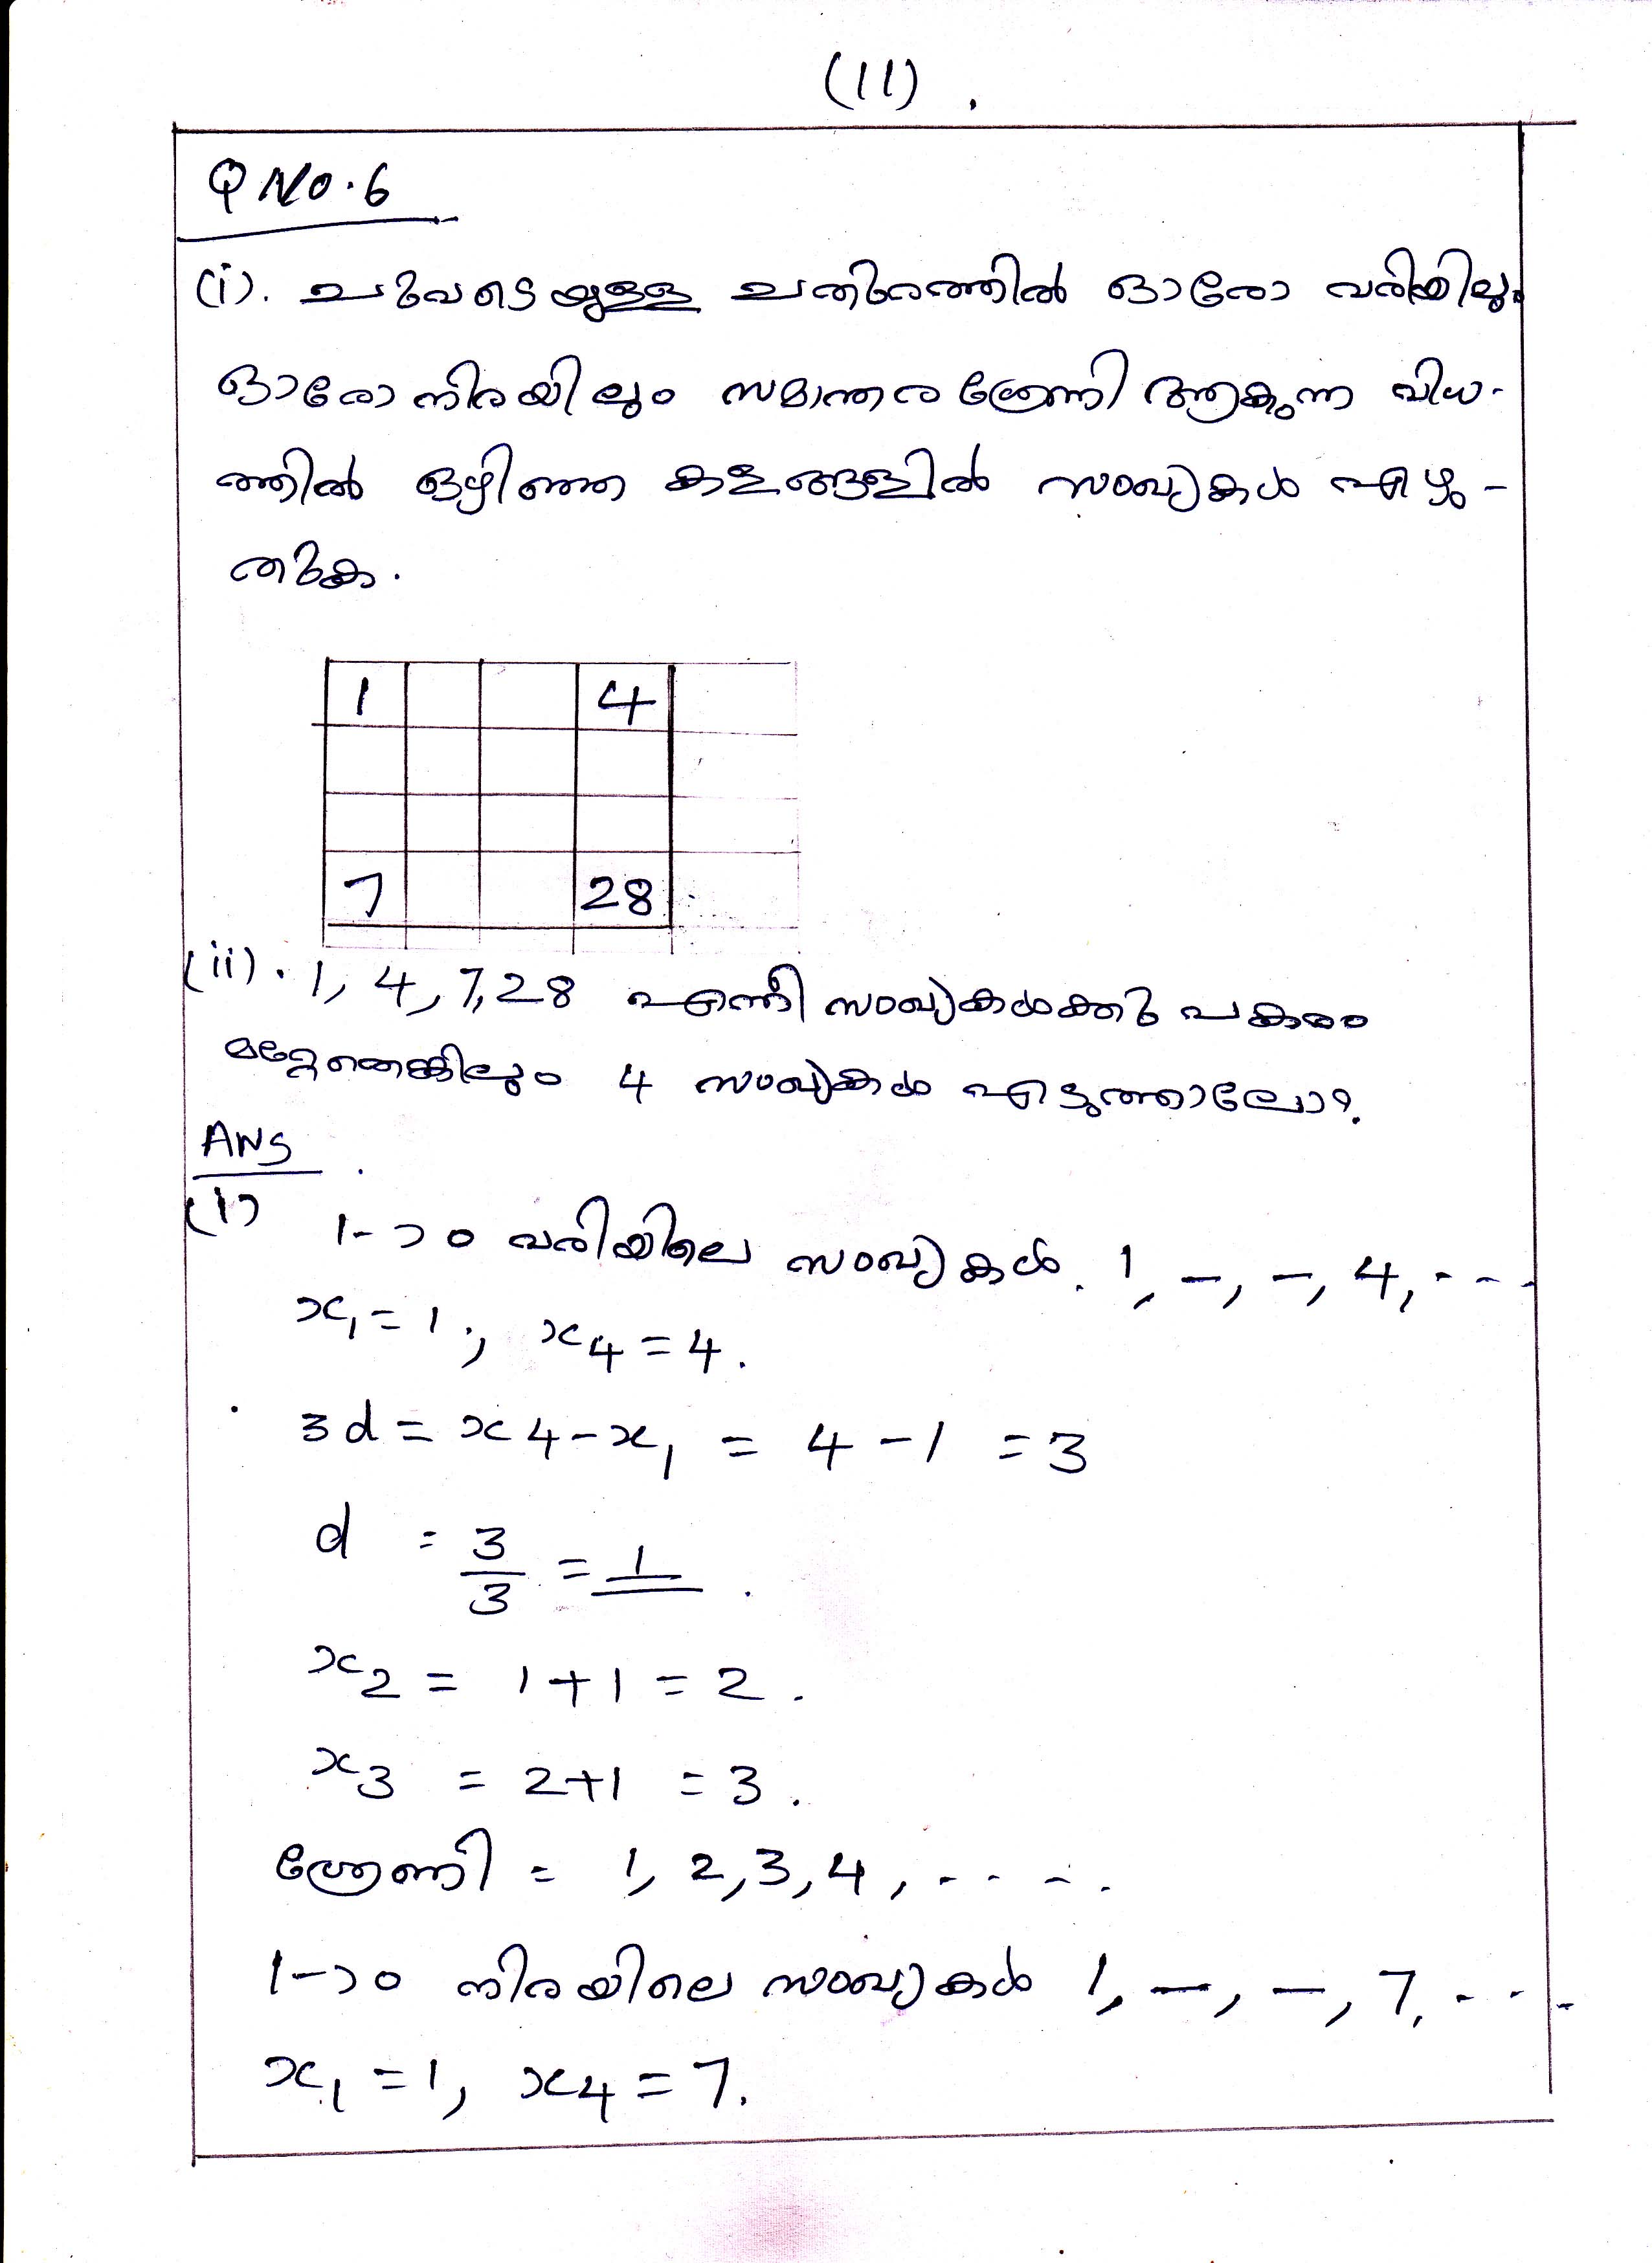 (11).
Q NO.6
(i). ചുവടെയുള്ള ചതുരത്തിൽ ഓരോ വരിയിലും
ഓരോ നിരയിലും സമാന്തരശ്രേണി ആകുന്ന വിധ-
ത്തിൽ ഒഴിഞ്ഞ കളങ്ങളിൽ സംഖ്യകൾ എഴു-
തുക.
1 4
7 28
(ii). 1, 4, 7, 28 എന്നീ സംഖ്യകൾക്കു പകരം
മറ്റേതെങ്കിലും 4 സംഖ്യകൾ എടുത്താലോ?.
ANS
(i) 1-ാം വരിയിലെ സംഖ്യകൾ. 1, -, -, 4, - - -
x₁ = 1 ; x₄ = 4.
3d = x₄ - x₁ = 4 - 1 = 3
d = 3/3 = 1.
x₂ = 1+1 = 2.
x₃ = 2+1 = 3.
ശ്രേണി = 1, 2, 3, 4, - - - .
1-ാം നിരയിലെ സംഖ്യകൾ 1, -, -, 7, - - -
x₁ = 1, x₄ = 7.